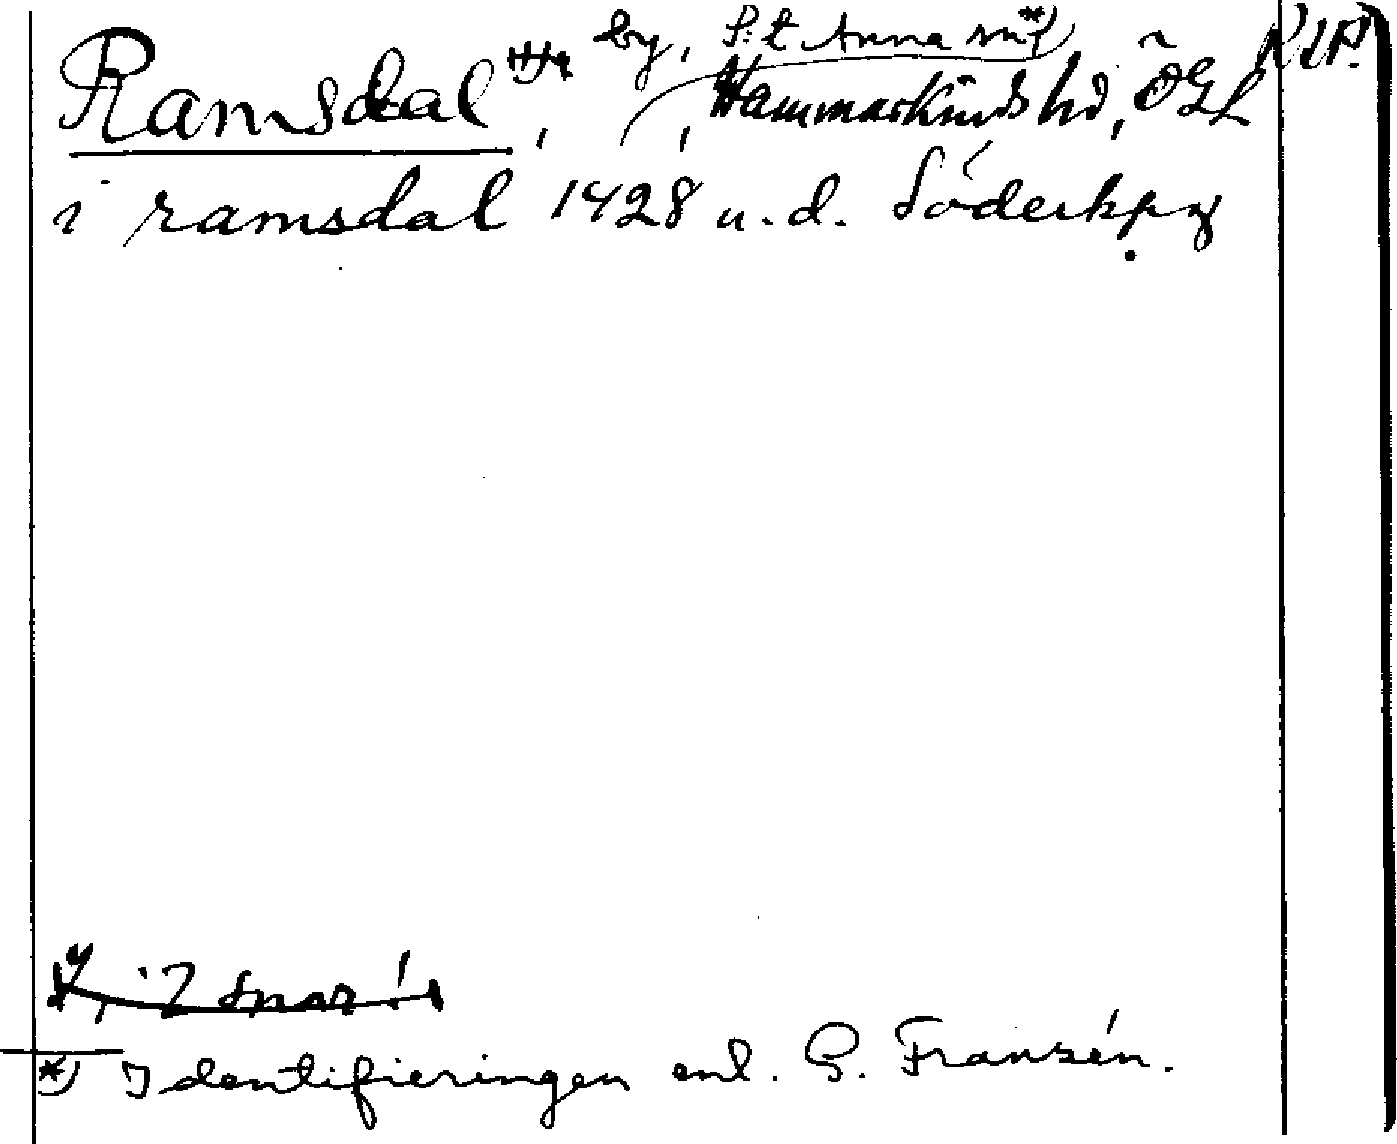 Ramsdal, by, S:t Anna sn *)
Hammarkinds hd, ÖGL
i ramsdal 1428 u. d. Söderkpg
*) Identifieringen enl. G. Fransén.